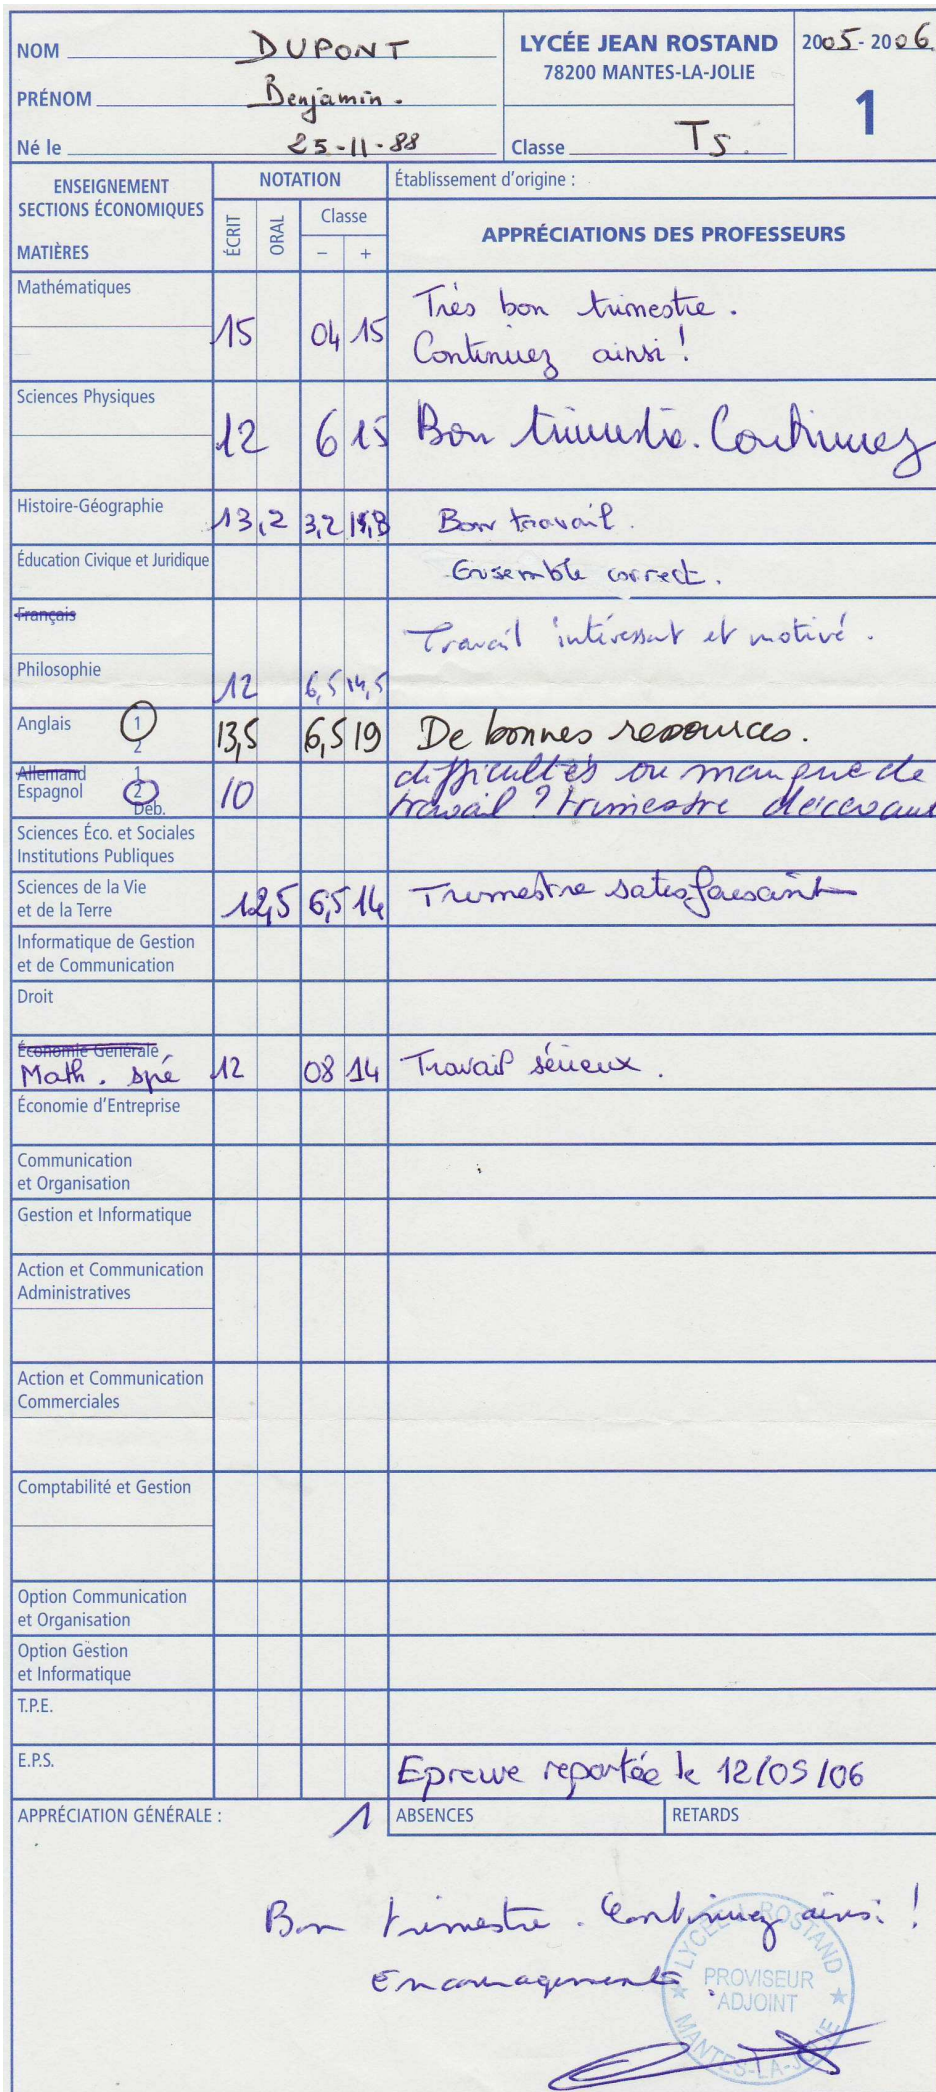 NOM DUPONT
PRÉNOM Benjamin.
Né le 25-11-88
LYCÉE JEAN ROSTAND
78200 MANTES-LA-JOLIE
Classe TS.
2005-2006
1
ENSEIGNEMENT
SECTIONS ÉCONOMIQUES
MATIÈRES
NOTATION
ÉCRIT ORAL Classe
- +
Établissement d'origine :
APPRÉCIATIONS DES PROFESSEURS
Mathématiques
15 04 15 Très bon trimestre.
Continuez ainsi !
Sciences Physiques
12 6 15 Bon trimestre. Continuez
Histoire-Géographie 13,2 3,2 Bon travail.
Éducation Civique et Juridique Ensemble correct.
Français
Travail intéressant et motivé.
Philosophie 12 6,5 14,5
Anglais 1 13,5 6,5 19 De bonnes ressources.
2
Allemand 1 difficultés ou manque de
Espagnol 2 10 travail ? trimestre décevant
Déb.
Sciences Éco. et Sociales
Institutions Publiques
Sciences de la Vie
et de la Terre 12,5 6,5 14 Trimestre satisfaisant
Informatique de Gestion
et de Communication
Droit
Économie Générale
Math. spé 12 08 14 Travail sérieux.
Économie d'Entreprise
Communication
et Organisation
Gestion et Informatique
Action et Communication
Administratives
Action et Communication
Commerciales
Comptabilité et Gestion
Option Communication
et Organisation
Option Gestion
et Informatique
T.P.E.
E.P.S. Epreuve reportée le 12/05/06
APPRÉCIATION GÉNÉRALE : 1 ABSENCES RETARDS
Bon trimestre. Continuez ainsi !
Encouragements.
LYCÉE J. ROSTAND
PROVISEUR
ADJOINT
MANTES-LA-JOLIE